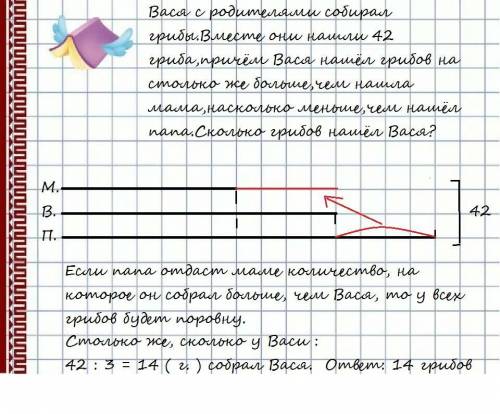 Вася с родителями собирал
грибы.Вместе они нашли 42
гриба,причём Вася нашёл грибов на
столько же больше,чем нашла
мама,насколько меньше,чем нашёл
папа.Сколько грибов нашёл Вася?
М.
В.
П.
42
Если папа отдаст маме количество, на
которое он собрал больше, чем Вася, то у всех
грибов будет поровну.
Столько же, сколько у Васи :
42 : 3 = 14 ( г. ) собрал Вася. Ответ: 14 грибов